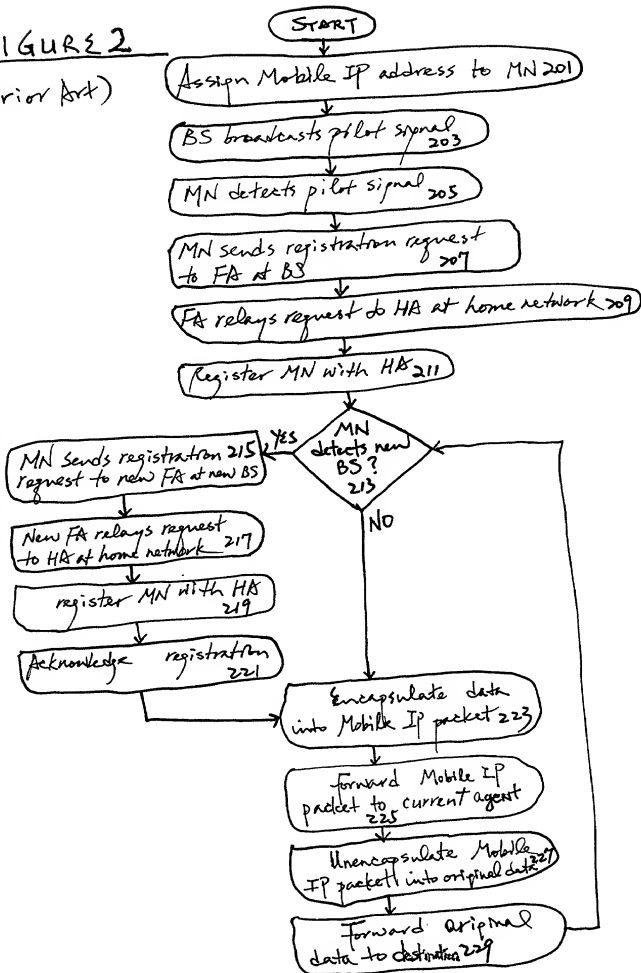 IGURE 2
rior Art)
START
Assign Mobile IP address to MN 201
BS broadcasts pilot signal
203
MN detects pilot signal 205
MN sends registration request
to FA at BS 207
FA relays request to HA at home network 209
Register MN with HA 211
MN
detects new
BS?
213
YES
NO
MN sends registration 215
request to new FA at new BS
New FA relays request
to HA at home network 217
register MN with HA
219
Acknowledge registration
221
Encapsulate data
into Mobile IP packet 223
Forward Mobile IP
packet to current agent
225
Unencapsulate Mobile 227
IP packet into original data
Forward original
data to destination 229